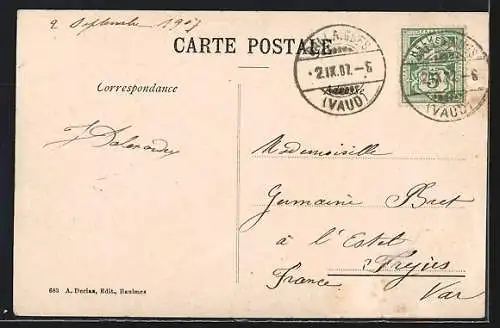 2 Septembre 1907
CARTE POSTALE
2.IX.07.-6
(VAUD)
HELVETIA
5
(VAUD)
Correspondance
Mademoiselle
Germaine Bret
à l'Estel
Fréjus
France
Var
683 A. Deriaz, Edit., Baulmes